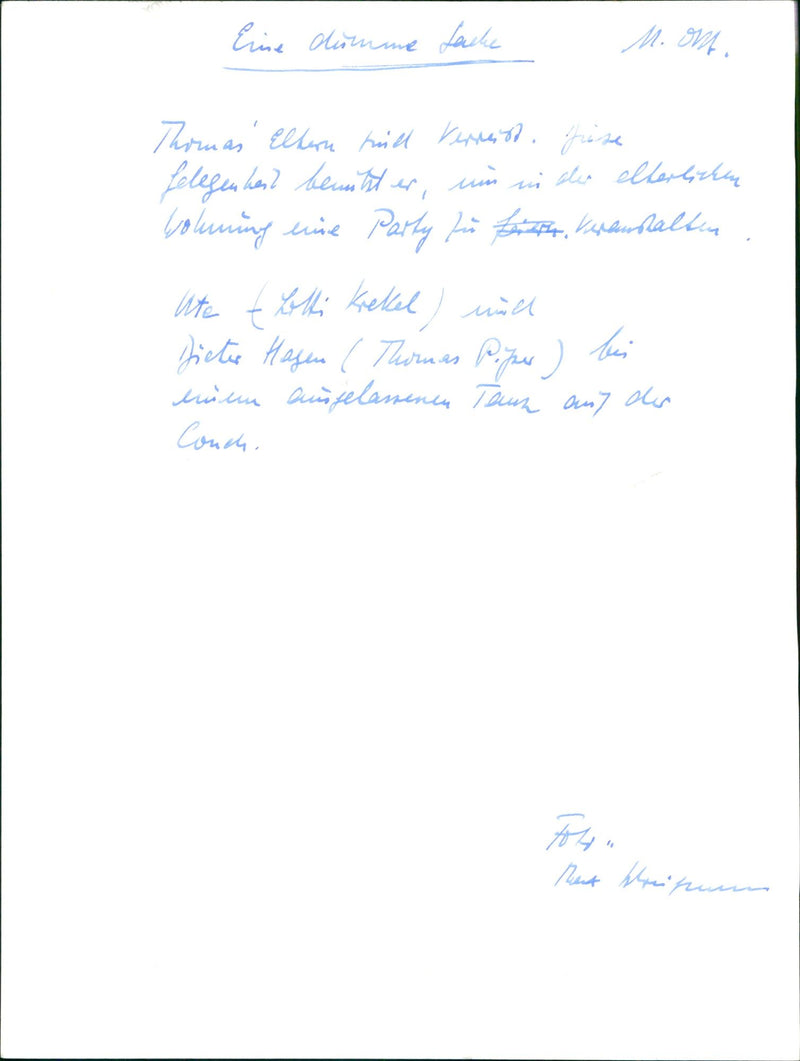 Eine dumme Sache 11. Okt.
Thomas' Eltern sind verreist. Diese
Gelegenheit benützt er, um in der elterlichen
Wohnung eine Party zu feiern. veranstalten.
Ute (Lotti Krekel) und
Dieter Hagen (Thomas Piper) bei
einem ausgelassenen Tanz auf der
Couch.
Foto: